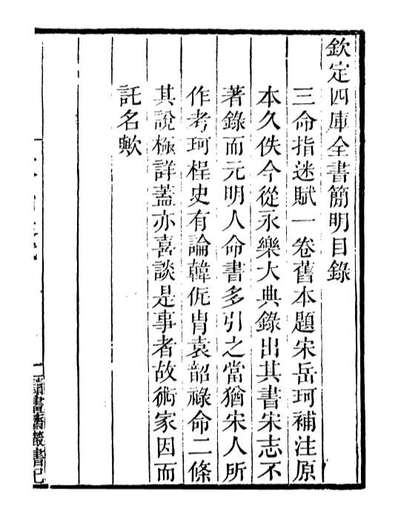 欽定四庫全書簡明目錄
三命指迷賦一卷舊本題宋岳珂補注原
本久佚今從永樂大典錄出其書宋志不
著錄而元明人命書多引之當猶宋人所
作考珂桯史有論韓侂胄袁韶祿命二條
其說極詳蓋亦喜談是事者故術家因而
託名歟